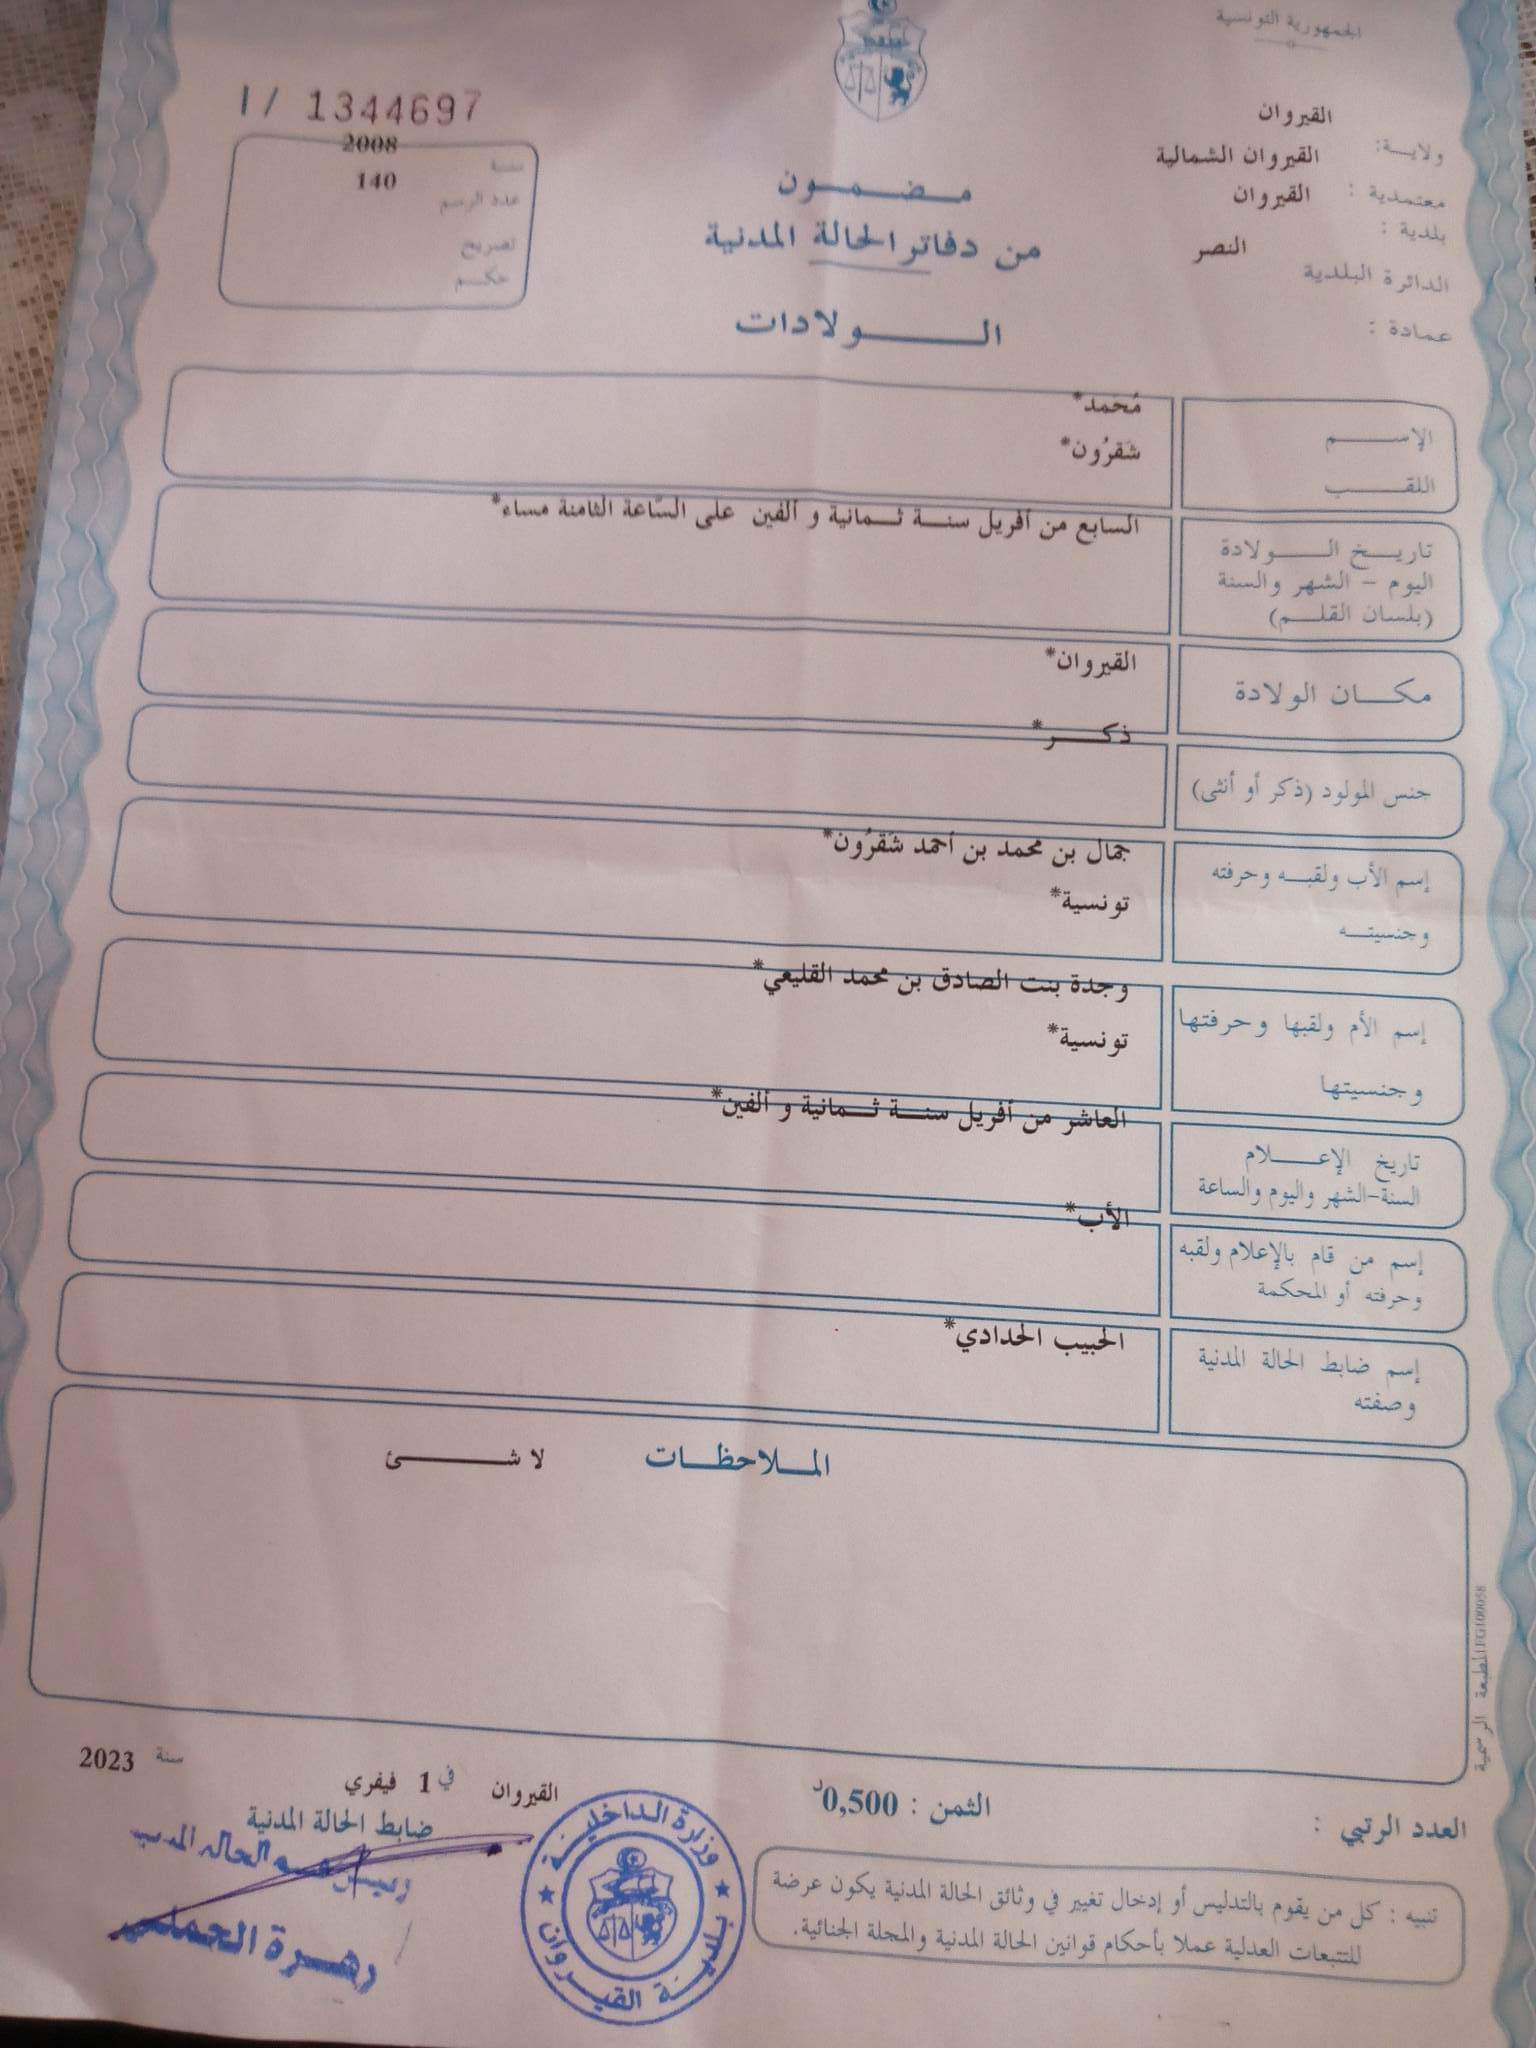 الجمهورية التونسية
ولاية: القيروان
معتمدية : القيروان الشمالية
بلدية : القيروان
الدائرة البلدية النصر
عمادة :
1/ 1344697
سنة 2008
عدد الرسم 140
تصريح
حكم
مضمون
من دفاتر الحالة المدنية
الولادات
الإسم مُحَمد*
اللقب شَقرُون*
تاريخ الولادة السابع من أفريل سنة ثمانية و ألفين على السّاعة الثامنة مساء*
اليوم - الشهر والسنة
(بلسان القلم)
مكان الولادة القيروان*
جنس المولود (ذكر أو أنثى) ذكر*
إسم الأب ولقبه وحرفته جمال بن محمد بن أحمد شَقرُون*
وجنسيته تونسية*
إسم الأم ولقبها وحرفتها وجدة بنت الصادق بن محمد القليعي*
وجنسيتها تونسية*
تاريخ الإعلام العاشر من أفريل سنة ثمانية و ألفين*
السنة-الشهر واليوم والساعة
إسم من قام بالإعلام ولقبه الأب*
وحرفته أو المحكمة
إسم ضابط الحالة المدنية الحبيب الحدادي*
وصفته
الملاحظات لا شئ
المطبعة الرسمية
العدد الرتبي :
الثمن : 0,500د
القيروان في 1 فيفري سنة 2023
ضابط الحالة المدنية
وزارة الداخلية
بلدية القيروان
تنبيه : كل من يقوم بالتدليس أو إدخال تغيير في وثائق الحالة المدنية يكون عرضة
للتتبعات العدلية عملا بأحكام قوانين الحالة المدنية والمجلة الجنائية.